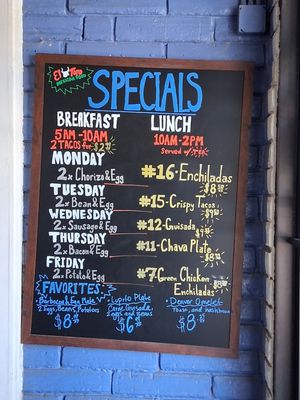 El Toro
Mexican Food
SPECIALS
BREAKFAST
5AM-10AM
2 TACOS for $2
LUNCH
10AM-2PM
Served w/
MONDAY
2x Chorizo & Egg
#16-Enchiladas
$8
TUESDAY
2x Bean & Egg
#15-Crispy Tacos
$9
WEDNESDAY
2x Sausage & Egg
#12-Guisada
$9
THURSDAY
2x Bacon & Egg
#11-Chava Plate
$8
FRIDAY
2x Potato & Egg
#7 Green Chicken
Enchiladas
$8
FAVORITES:
Barbacoa & Egg Plate
2 Eggs, Beans, Potatoes
$8
Lupito Plate
Carne Guisada
Eggs and Beans
$6
Denver Omelet
Toast, and Hashbrowns
$8